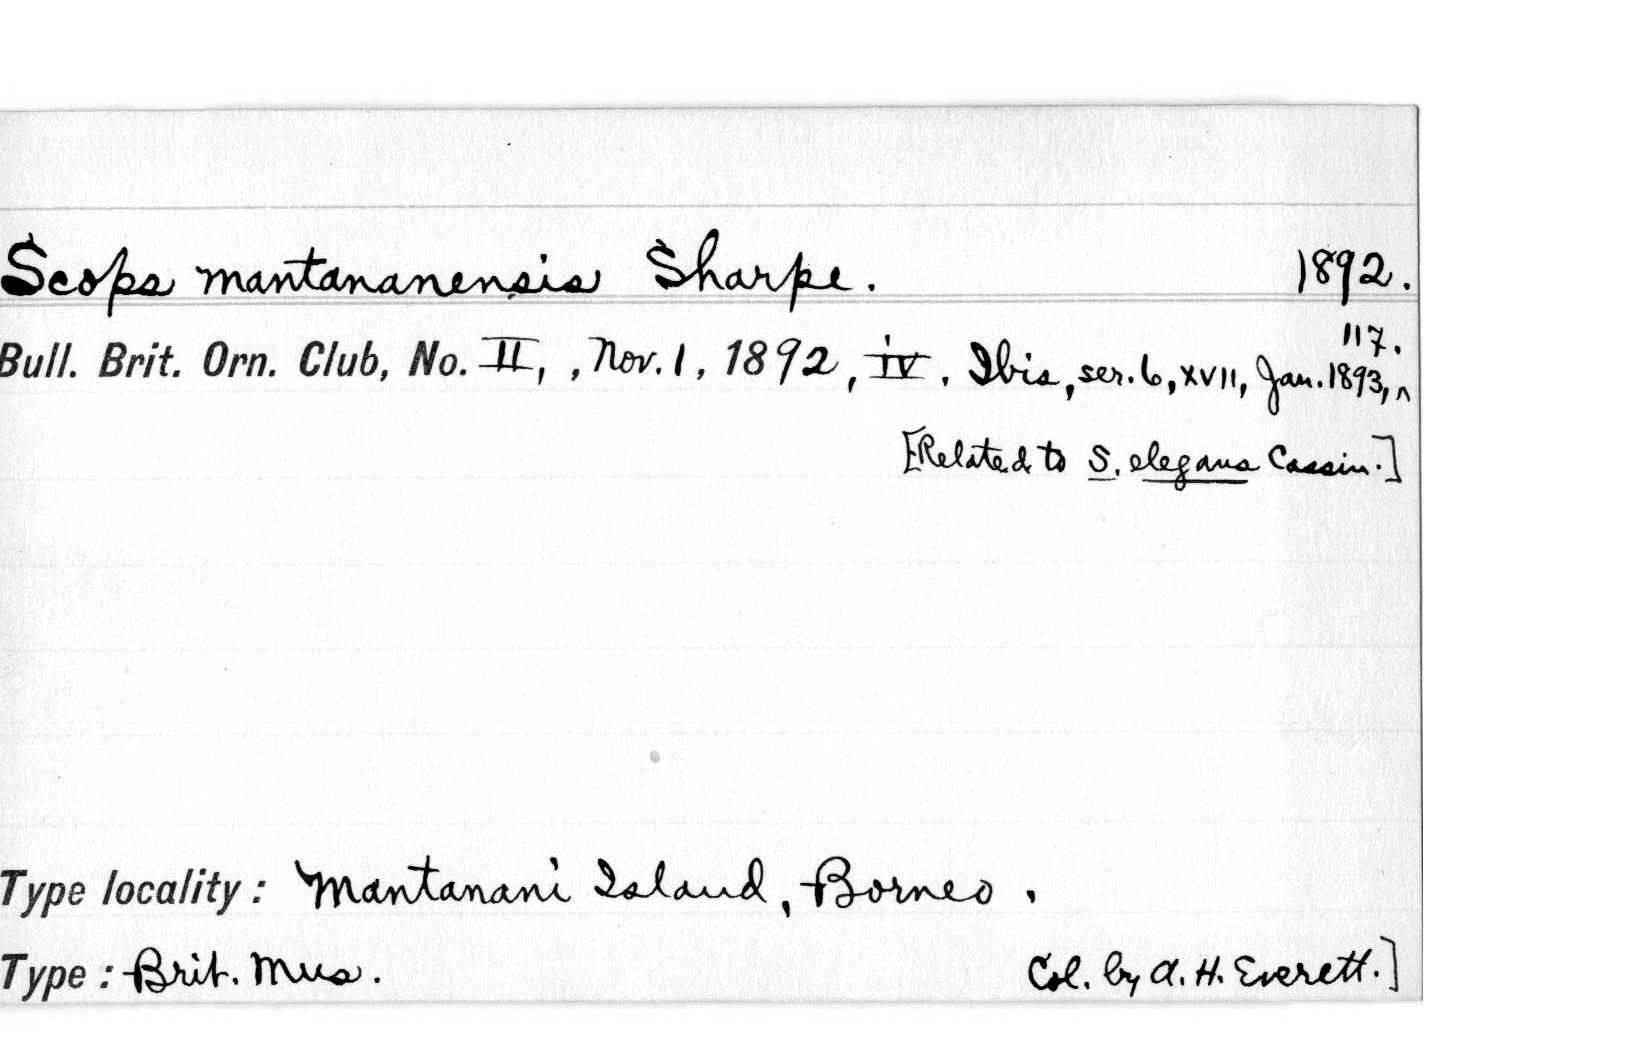 Scops mantananensis Sharpe. 1892.
Bull. Brit. Orn. Club, No. II, , Nov. 1, 1892, iv. Ibis, ser. 6, XVII, Jan. 1893, ^ 117.
[Related to S. elegans Cassin.]
Type locality: Mantanani Island, Borneo.
Type: Brit. Mus. Col. by A. H. Everett.]